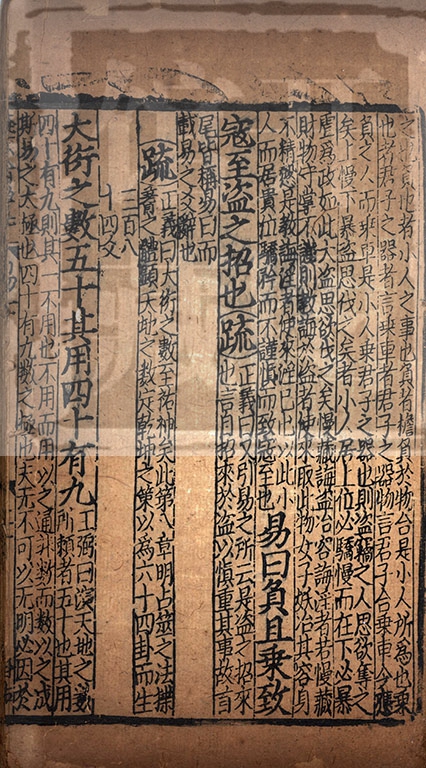 負也者小人之事也負者擔負於物合是小人所為也乘
也者君子之器者言乘車者君子之器物言君子合乘車今應
負之人而乘車是小人乘君子之器也則盜竊之人思欲奪之
矣上慢下暴盜思伐之矣者小人居上位必驕慢而在下必暴
虐為政如此大盜思欲伐之矣慢藏誨盜冶容誨淫者若慢藏
財物守掌不謹則教誨於盜者使來取此物女子妖冶其容身
不精慤是教誨淫者使來淫己也以此小
人而居貴位驕矜而不謹慎而致寇至也
易曰負且乘致
寇至盜之招也
疏
正義曰又引易之所云是盜之招來
也言自招來於盜以慎重其事故首
尾皆稱易曰而
載易之爻辭也
疏
正義曰大衍之數至祐神矣此第八章明占筮之法揲
蓍之體顯天地之數定乾坤之策以為六十四卦而生
三百八
十四爻
大衍之數五十其用四十有九
王弼曰演天地之數
所賴者五十也其用
四十有九則其一不用也不用而用以之通非數而數以之成
斯易之太極也四十有九數之極也夫无不可以无明必因於